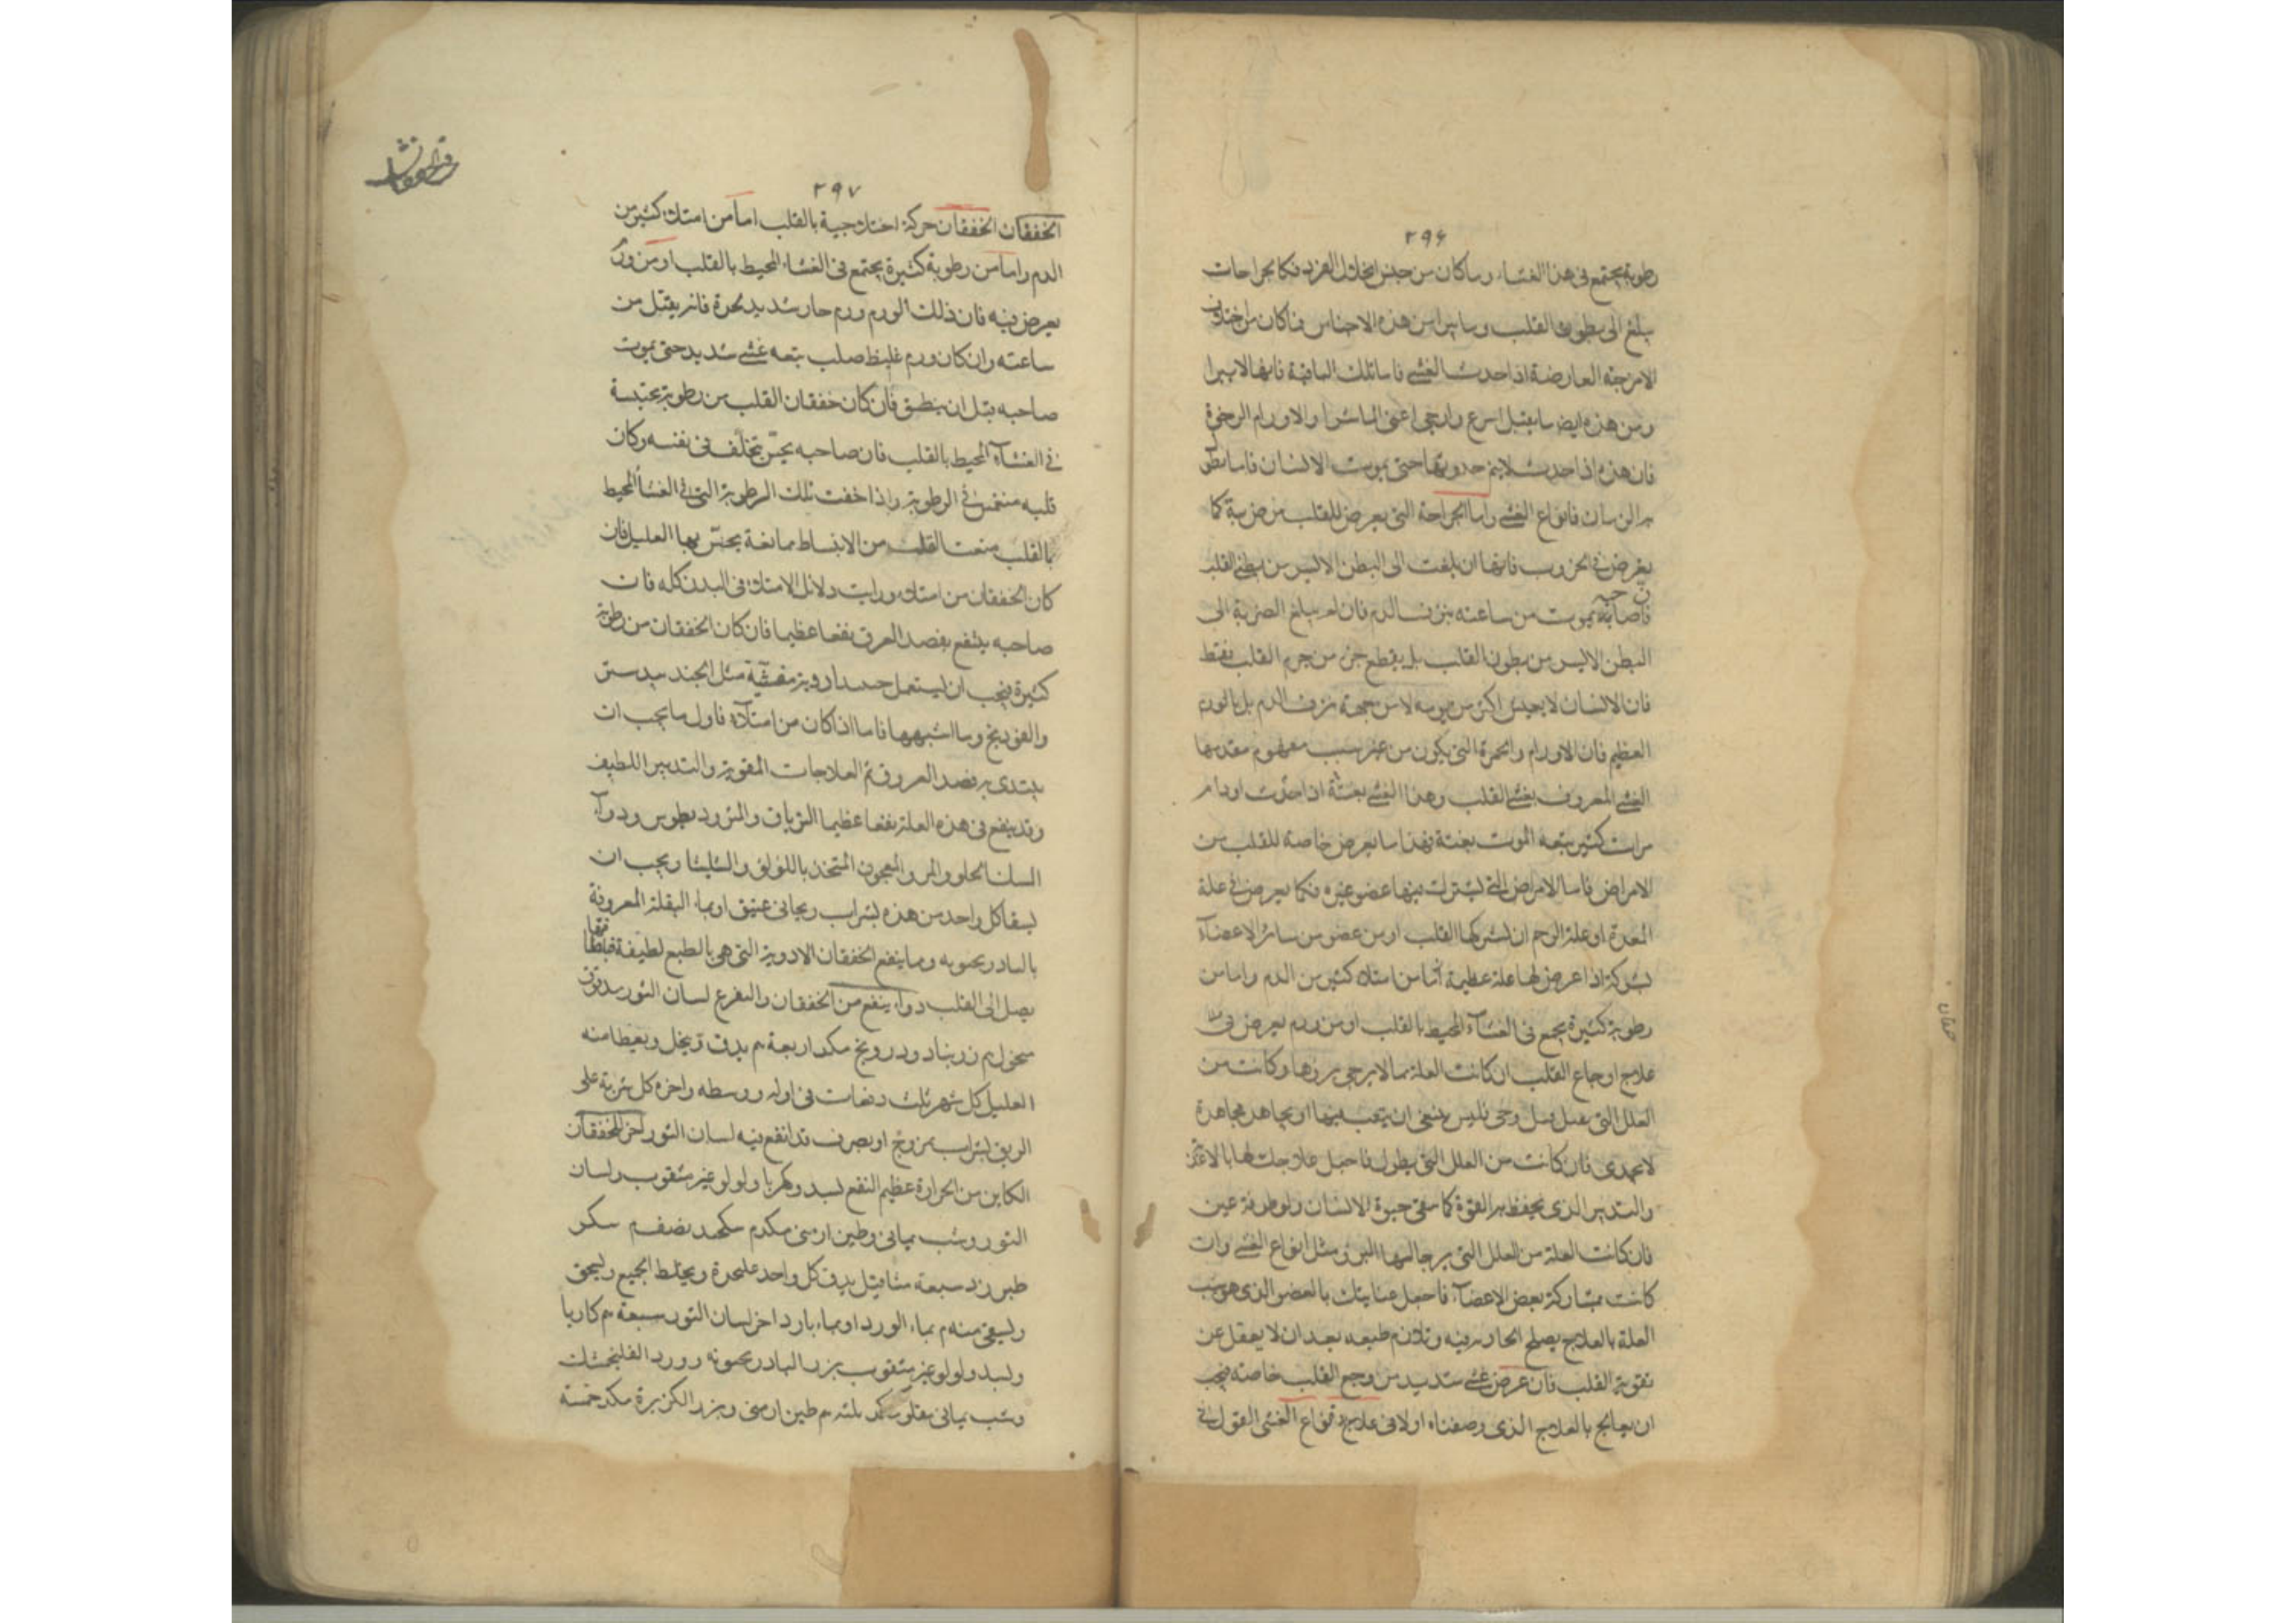 ٢٩۶
رطوبة يجتمع فى هذا الغشاء وما كان من جنس انحلال الفرد فكالجراحات
يبلغ الى بطون القلب وسايرا من هذه الاجناس فما كان من اختلاف
الامزجة العارضة اذا حدث الغشى فاما تلك الباقية فانها لا يبرا
ومن هذه ايضا ما يقتل اسرع واوحى اعنى الماشرا والاورام الرخوة
فان هذه اذا حدث لا يتم حدوثها حتى يموت الانسان فاما
الزمان فانواع الغشى واما الجراحة التى يعرض للقلب من ضربة كما
يعرض فى الحروب فانها ان بلغت الى البطن الايسر من بطنى القلب
فاصابته يموت من ساعته بنزف الدم فان لم يبلغ الضربة الى
البطن الايسر من بطون القلب بل يقطع جزء من جرم القلب فقط
فان الانسان لا يعيش اكثر من يومه لا من جهة نزف الدم بل بالورم
العظيم فان الاورام والحمرة التى يكون من غير سبب معلوم مقدمها
الغشى المعروف بغشى القلب وهذا الغشى بغتة اذا حدث اودام
مرات كثيرة يتبعه الموت بغتة فهذا ما يعرض خاصة للقلب من
الامراض فاما الامراض التى يشترك فيها عضو غيره فكما يعرض فى علة
المعدة او علة الرحم ان يشركها القلب او من عضو من سائر الاعضاء
بشركة اذا عرض لها علة عظيمة اما من امتلاء كثير من الدم واما من
رطوبة كثيرة يجمع فى الغشاء المحيط بالقلب او من ورم يعرض فى
علاج اوجاع القلب ان كانت العلة مما لا يرجى برؤها وكانت من
العلل التى يقتل وحى فليس ينبغى ان يتعب فيها او يجاهد مجاهدة
لا تجدى فان كانت من العلل التى يطول فاجعل علاجك لها بالاغذية
والتدبير الذى يحفظ به القوة كما سقى حيوة الانسان ولو طرفة عين
فان كانت العلة من العلل التى يرجا لها البرؤ مثل انواع الغشى وان
كانت بمشاركة بعض الاعضاء فاجعل عنايتك بالعضو الذى هو سبب
العلة بالعلاج يصلح الحادث فيه وتلازم طبعه بعد ان لا يعقل عن
تقوية القلب فان عرض غشى شديد من وجع القلب خاصة فيجب
ان يعالج بالعلاج الذى وصفناه اولا فى علاج انواع الغشى القول فى
٢٩٧
الخفقان الخفقان حركة اختلاجية بالقلب اما من امتلاء كثير من
الدم واما من رطوبة كثيرة يجتمع فى الغشاء المحيط بالقلب او من ورم
يعرض فيه فان ذلك الورم ورم حار شديد الحرة فانه يقتل من
ساعته وان كان ورم غليظ صلب يتبعه غشى شديد حتى يموت
صاحبه قبل ان ينطق فان كان خفقان القلب من رطوبة محتبسة
فى الغشاء المحيط بالقلب فان صاحبه يحس تخلف فى نفسه وكان
قلبه منغمس فى الرطوبة واذا خفت تلك الرطوبة التى فى الغشأ المحيط
بالقلب منعت القلب من الانبساط ممانعة يحس بها العليل فان
كان الخفقان من امتلاء ورايت دلائل الامتلاء فى البدن كله فان
صاحبه ينتفع بفصد العرق نفعا عظيما فان كان الخفقان من رطوبة
كثيرة فيجب ان يستعمل ادوية مفشية مثل الجندبيدستر
والفوديخ وما اشبهها فاما اذا كان من امتلاء فاول ما يجب ان
يبتدى به فصد العروق ثم العلاجات المقوية والتدبير اللطيف
وقد ينفع فى هذه العلة نفعا عظيما الترياق والمثروديطوس ودواء
المسك الحلو والمر والمعجون المتخذ باللؤلؤ والشليثا ويجب ان
يسقا كل واحد من هذه بشراب ريحانى عتيق او بماء البقلة المعروفة
بالبادرنجبويه ومما ينفع الخفقان الادوية التى هى بالطبع لطيفة
يصل الى القلب دواء ينفع من الخفقان والتفزع لسان الثور مدقوق
منخول ٤م زرنباد ودرونج مكد اربعة ٤م يدق وينخل ويعطا منه
العليل كل شهر ثلث دفعات فى اوله ووسطه واخره كل شربة على
الريق بشراب ممزوج او بصرف قد انقع فيه لسان الثور اخر للخفقان
الكاين من الحرارة عظيم النفع لسد وكهربا ولولو غير مثقوب ولسان
الثور وشب يمانى وطين ارمنى مكدم سكر
طبرزد سبعة مثاقيل يدق كل واحد علحدة ويخلط الجميع وليحق
ويسقى منه ٤م بماء الورد او بماء بارد اخر لسان الثور سبعة ٤م كاربا
ولسد ولولو غير مثقوب بزر البادرنجبويه وورد الفلنجمشك
وشب يمانى مقلو مكد ثلثه ٤م طين ارمنى وبزر الكزبرة مكد خمسة